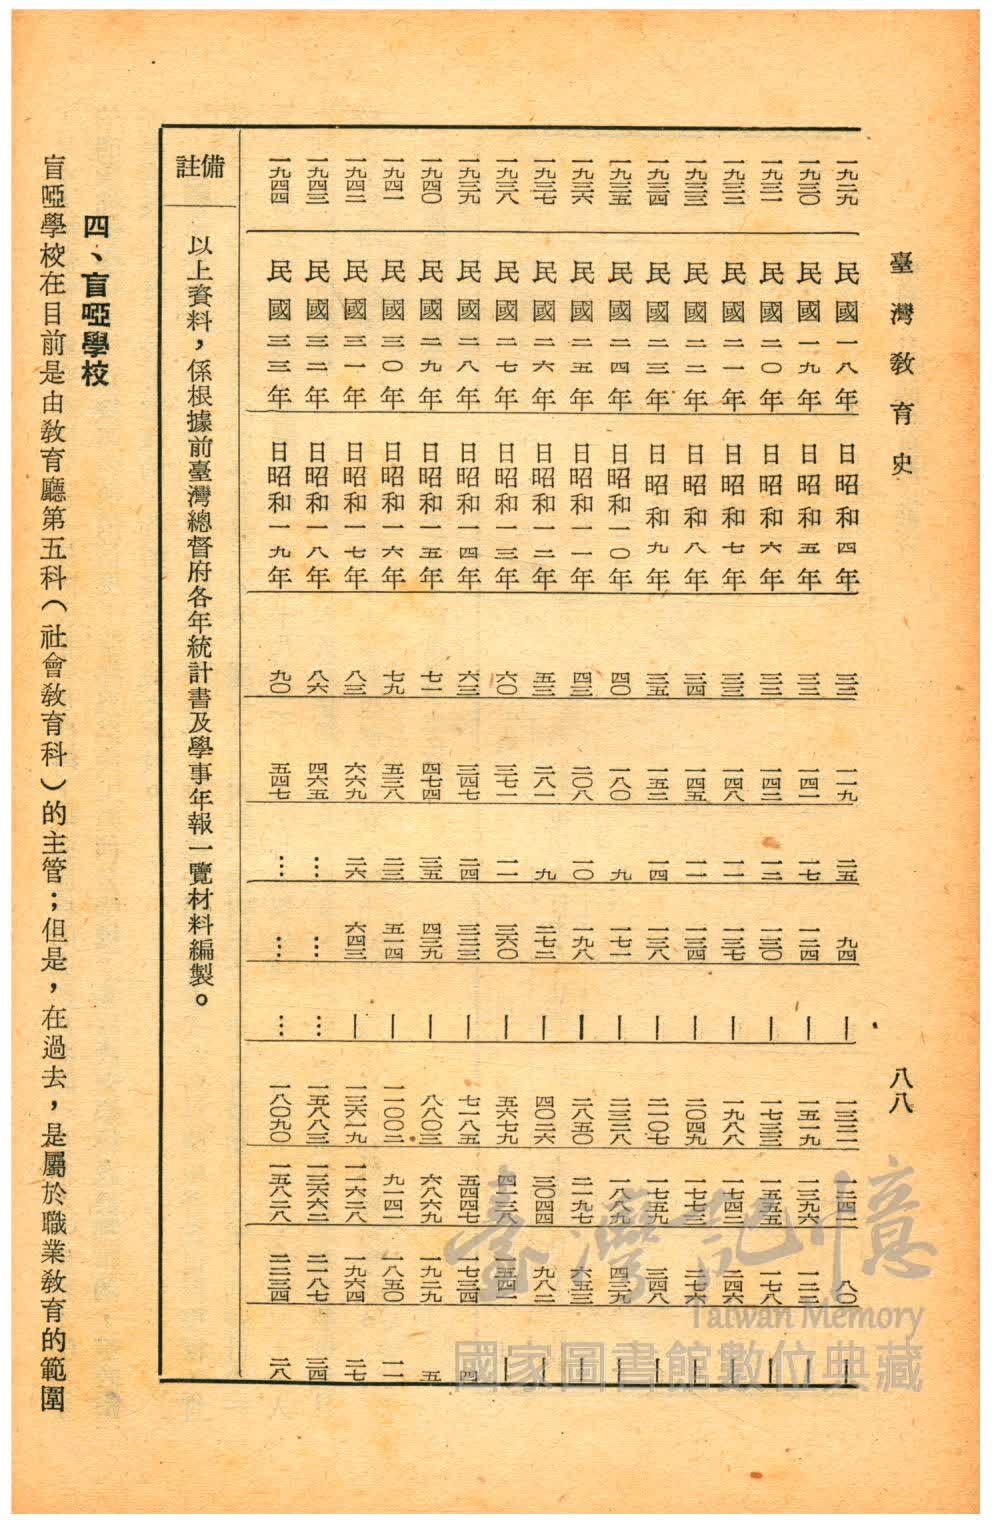 臺灣教育史
八八
一九二九 民國一八年 日昭和四年 三三 一一九 二五 九四 — 一三二一 一二四一 八〇 —
一九三〇 民國一九年 日昭和五年 三三 一四一 一七 一二四 — 一五一九 一三九六 一二三 —
一九三一 民國二〇年 日昭和六年 三三 一四二 一二 一三〇 — 一七三三 一五五五 一七八 —
一九三二 民國二一年 日昭和七年 三三 一四八 一一 一三七 — 一九八八 一七四二 二四六 —
一九三三 民國二二年 日昭和八年 三四 一四五 一一 一三四 — 二〇四九 一七七三 二七六 —
一九三四 民國二三年 日昭和九年 三五 一五二 一四 一三八 — 二一〇七 一七五九 三四八 —
一九三五 民國二四年 日昭和一〇年 四〇 一八〇 九 一七一 — 二三二八 一八八九 四三九 —
一九三六 民國二五年 日昭和一一年 四三 二〇八 一〇 一九八 — 二八五〇 二一九七 六五三 —
一九三七 民國二六年 日昭和一二年 五三 二八一 九 二七二 — 四〇二六 三〇四四 九八二 —
一九三八 民國二七年 日昭和一三年 六〇 三七一 一一 三六〇 — 五六七九 四一三八 一五四一 —
一九三九 民國二八年 日昭和一四年 六三 三四七 二四 三二三 — 七一八五 五四四七 一七三四 四
一九四〇 民國二九年 日昭和一五年 七一 四七四 三五 四三九 — 八八〇三 六八六九 一九二九 五
一九四一 民國三〇年 日昭和一六年 七九 五三八 二三 五一四 — 一一〇〇二 九一四一 一八五〇 一一
一九四二 民國三一年 日昭和一七年 八三 六六九 二六 六四三 — 一三六一九 一一六二八 一九六四 二七
一九四三 民國三二年 日昭和一八年 八六 四六五 … … … 一五八八三 一三六六二 二一八七 三四
一九四四 民國三三年 日昭和一九年 九〇 五四七 … … … 一八〇九〇 一五八二八 二二三四 二八
備註 以上資料，係根據前臺灣總督府各年統計書及學事年報一覽材料編製。
四、盲啞學校
盲啞學校在目前是由教育廳第五科（社會教育科）的主管；但是，在過去，是屬於職業教育的範圍
臺灣記憶
Taiwan Memory
國家圖書館數位典藏